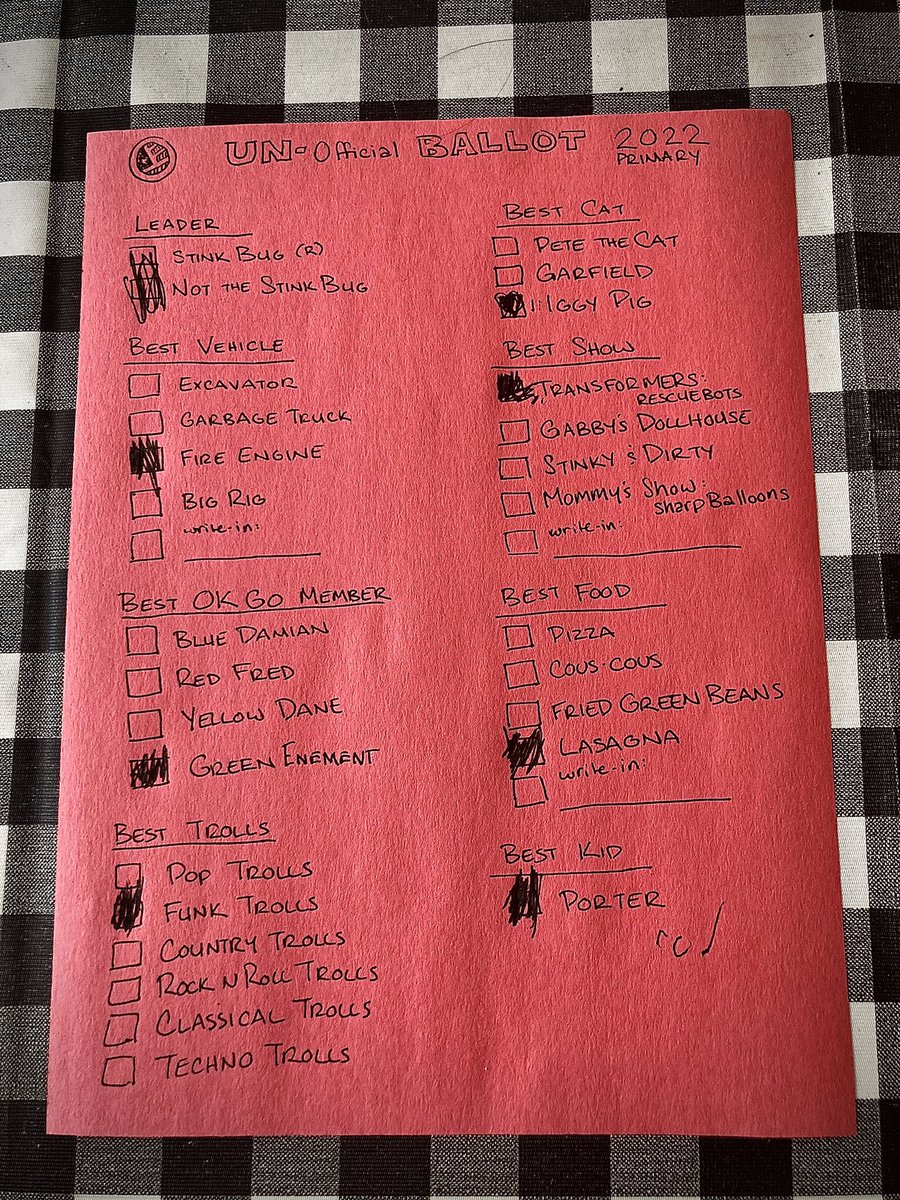 UN-Official BALLOT 2022
PRIMARY
LEADER
STINK BUG (R)
NOT THE STINK BUG
BEST VEHICLE
EXCAVATOR
GARBAGE TRUCK
FIRE ENGINE
BIG RIG
write-in:
BEST OK GO MEMBER
BLUE DAMIAN
RED FRED
YELLOW DANE
GREEN ENEMENT
BEST TROLLS
POP TROLLS
FUNK TROLLS
COUNTRY TROLLS
ROCK N ROLL TROLLS
CLASSICAL TROLLS
TECHNO TROLLS
BEST CAT
PETE THE CAT
GARFIELD
IGGY PIG
BEST SHOW
TRANSFORMERS:
RESCUEBOTS
GABBY'S DOLLHOUSE
STINKY & DIRTY
MOMMY'S SHOW:
SharpBalloons
write-in:
BEST FOOD
PIZZA
COUS-COUS
FRIED GREEN BEANS
LASAGNA
write-in:
BEST KID
PORTER